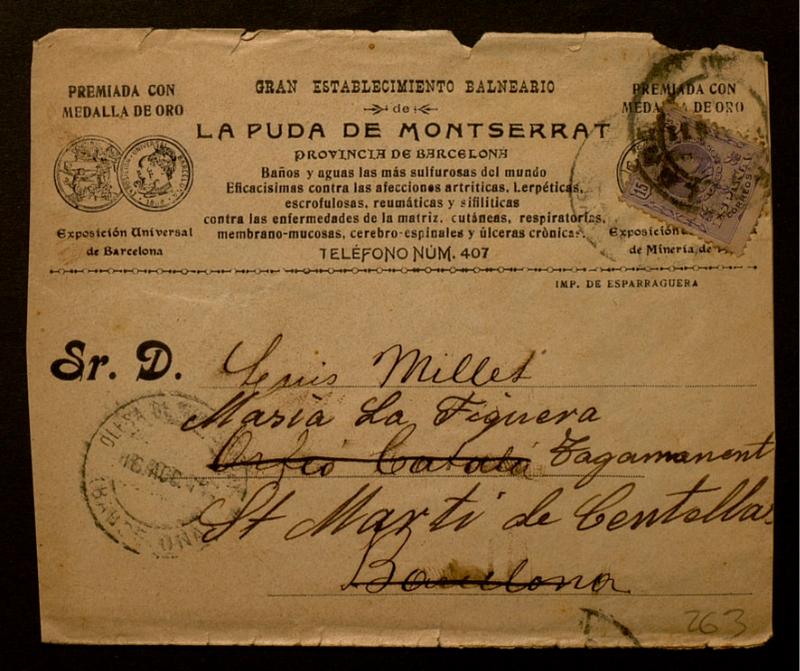 PREMIADA CON
MEDALLA DE ORO
Exposición Universal
de Barcelona
GRAN ESTABLECIMIENTO BALNEARIO
de
LA PUDA DE MONTSERRAT
PROVINCIA DE BARCELONA
Baños y aguas las más sulfurosas del mundo
Eficacísimas contra las afecciones artríticas, Lerpéticas,
escrofulosas, reumáticas y sifilíticas
contra las enfermedades de la matriz, cutáneas, respiratorias,
membrano-mucosas, cerebro-espinales y úlceras crónicas.
TELÉFONO NÚM. 407
PREMIADA CON
MEDALLA DE ORO
15
CORREOS
Exposición
de Minería de
IMP. DE ESPARRAGUERA
Sr. D. Lluis Millet
Masia La Figuera
Orfeó Català Tagamanent
St Martí de Centellas
Barcelona
OLESA DE
16 AGO
263